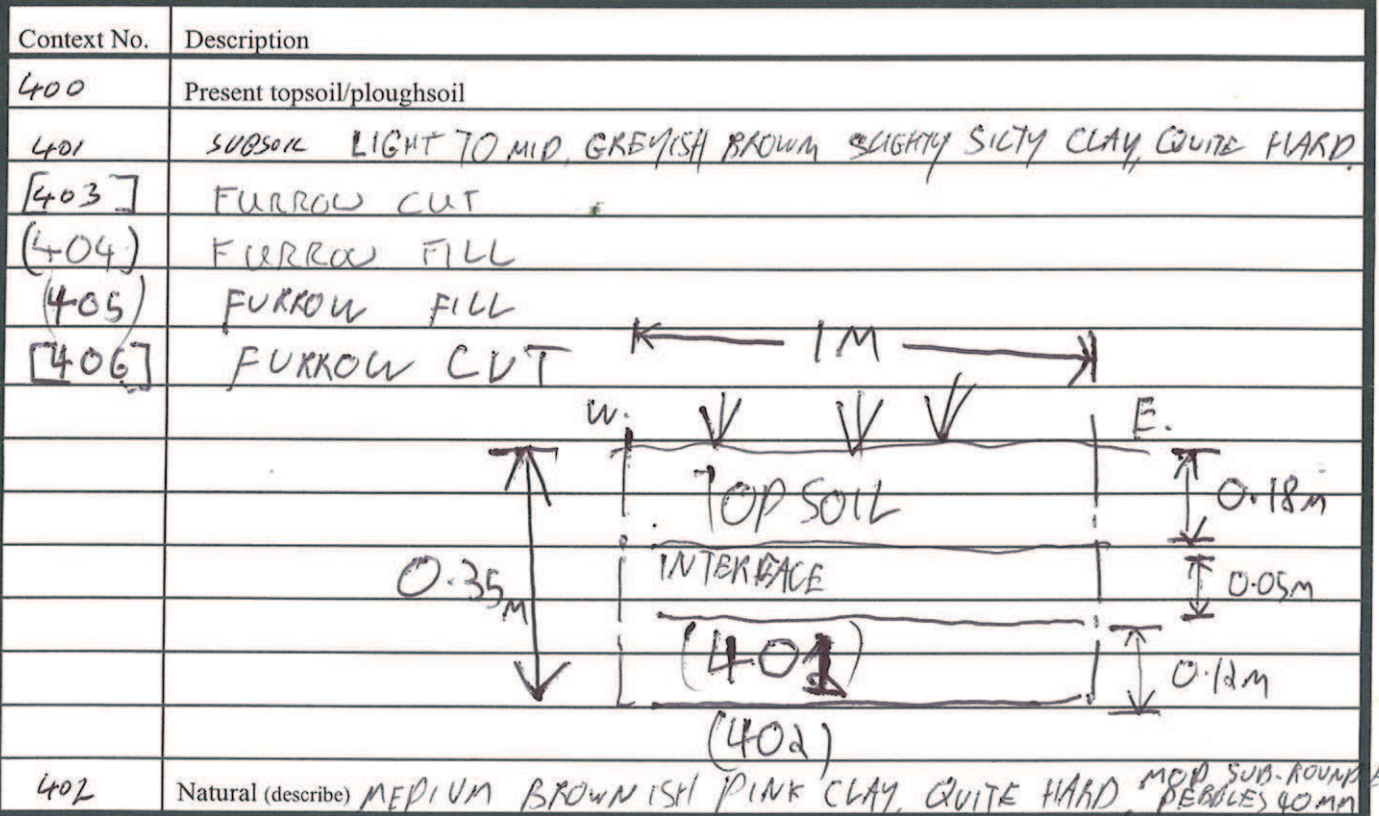 Context No. Description
400 Present topsoil/ploughsoil
401 SUBSOIL LIGHT TO MID, GREYISH BROWN SLIGHTY SILTY CLAY, QUITE HARD.
[403] FURROW CUT
(404) FURROW FILL
(405) FURROW FILL
[406] FURROW CUT
1M
W. E.
TOPSOIL 0.18M
0.35M INTERFACE 0.05M
(401) 0.12M
(402)
402 Natural (describe) MEDIUM BROWNISH PINK CLAY, QUITE HARD, MOD, SUB-ROUNDE
PEBBLES 40MM